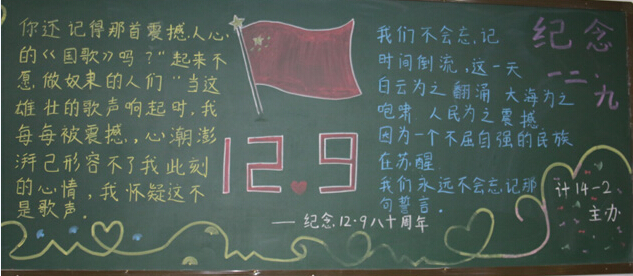 你还记得那首震撼人心
的《国歌》吗？"起来不
愿做奴隶的人们"当这
雄壮的歌声响起时，我
每每被震撼，心潮澎
湃已形容不了我此刻
的心情，我怀疑这不
是歌声。
12.9
我们不会忘记
时间倒流，这一天
白云为之翻涌 大海为之
咆啸 人民为之震撼
因为一个不屈自强的民族
在苏醒
我们永远不会忘记那
句誓言。
——纪念12·9八十周年
纪念
一二·九
计14-2
主办